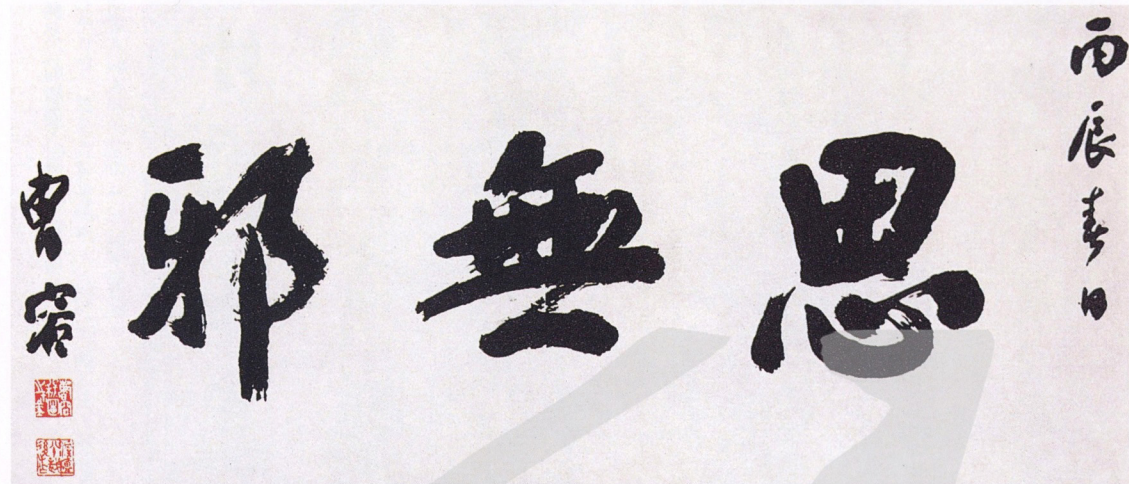 丙辰春日
思無邪
曹容